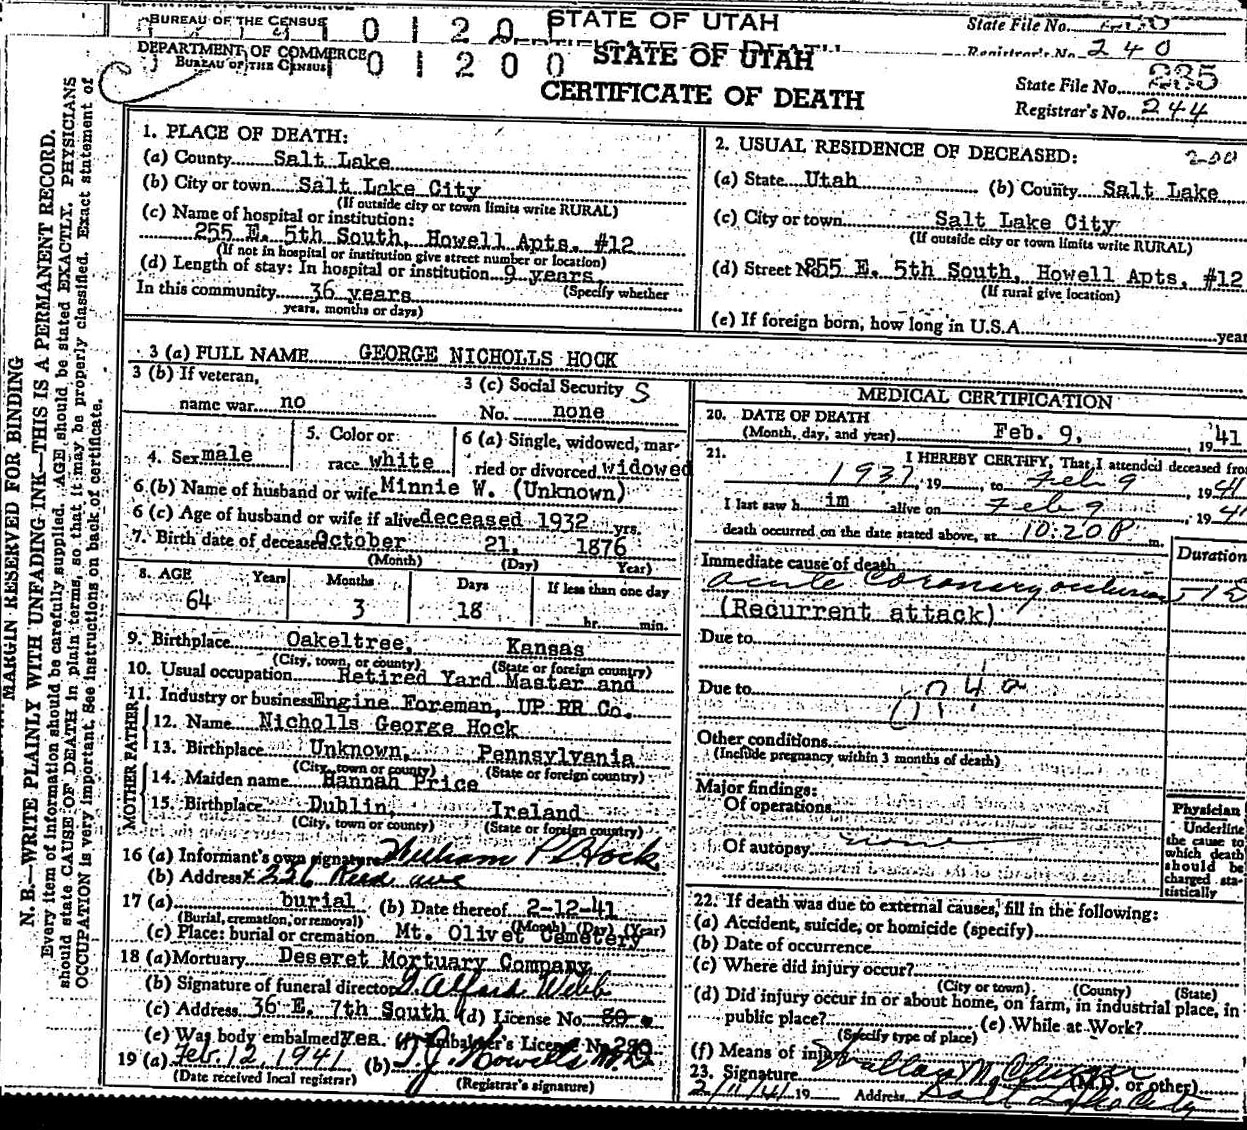 BUREAU OF THE CENSUS 0 1 2 0 STATE OF UTAH State File No.
Registrar's No. 240
DEPARTMENT OF COMMERCE
BUREAU OF THE CENSUS 0 1 2 0 0 STATE OF UTAH
CERTIFICATE OF DEATH
State File No. 235
Registrar's No. 244
MARGIN RESERVED FOR BINDING
N. B.—WRITE PLAINLY WITH UNFADING INK—THIS IS A PERMANENT RECORD.
Every item of information should be carefully supplied. AGE should be stated EXACTLY. PHYSICIANS
should state CAUSE OF DEATH in plain terms, so that it may be properly classified. Exact statement of
OCCUPATION is very important. See instructions on back of certificate.
1. PLACE OF DEATH:
(a) County Salt Lake
(b) City or town Salt Lake City
(If outside city or town limits write RURAL)
(c) Name of hospital or institution:
255 E. 5th South, Howell Apts. #12
(If not in hospital or institution give street number or location)
(d) Length of stay: In hospital or institution 9 years,
In this community 36 years (Specify whether
years, months or days)
2. USUAL RESIDENCE OF DECEASED: 200
(a) State Utah (b) County Salt Lake
(c) City or town Salt Lake City
(If outside city or town limits write RURAL)
(d) Street No. 255 E. 5th South, Howell Apts. #12
(If rural give location)
(e) If foreign born, how long in U.S.A. year
3 (a) FULL NAME GEORGE NICHOLLS HOCK
3 (b) If veteran,
name war no
3 (c) Social Security S
No. none
4. Sex male
5. Color or
race white
6 (a) Single, widowed, mar-
ried or divorced widowed
6 (b) Name of husband or wife Minnie W. (Unknown)
6 (c) Age of husband or wife if alive deceased 1932 yrs.
7. Birth date of deceased October 21, 1876
(Month) (Day) Year)
8. AGE Years Months Days If less than one day
64 3 18 hr. min.
9. Birthplace Oakeltree, Kansas
(City, town, or county) (State or foreign country)
10. Usual occupation Retired Yard Master and
11. Industry or business Engine Foreman, UP RR Co.
FATHER
12. Name Nicholls George Hock
13. Birthplace Unknown, Pennsylvania
(City, town or county) (State or foreign country)
MOTHER
14. Maiden name Hannah Price
15. Birthplace Dublin, Ireland
(City, town or county) (State or foreign country)
16 (a) Informant's own signature William P Hock
(b) Address 226 Reed ave
17 (a) burial (b) Date thereof 2-12-41
(Burial, cremation, or removal) (Month) (Day) (Year)
(c) Place: burial or cremation Mt. Olivet Cemetery
18 (a) Mortuary Deseret Mortuary Company
(b) Signature of funeral director G. Alford Webb
(c) Address 36 E. 7th South (d) License No. 80
(e) Was body embalmed? Yes. Embalmer's License No. 280
19 (a) Feb. 12, 1941 (b) T. J. Howells M.D.
(Date received local registrar) (Registrar's signature)
MEDICAL CERTIFICATION
20. DATE OF DEATH
(Month, day, and year) Feb. 9, 1941
21. I HEREBY CERTIFY, That I attended deceased from
1937, 19 , to Feb 9, 1941
I last saw h im alive on Feb 9, 194
death occurred on the date stated above, at 10:20 P m.
Immediate cause of death Duration
acute coronary occlusion
(Recurrent attack)
Due to
Due to
Other conditions
(Include pregnancy within 3 months of death)
Major findings:
Of operations
Of autopsy none
Physician
Underline
the cause to
which death
should be
charged sta-
tistically
22. If death was due to external causes, fill in the following:
(a) Accident, suicide, or homicide (specify)
(b) Date of occurrence
(c) Where did injury occur?
(City or town) (County) (State)
(d) Did injury occur in or about home, on farm, in industrial place, in
public place? (e) While at Work?
(Specify type of place)
(f) Means of injury
23. Signature (M.D. or other)
2/11/41 19 Address Salt Lake City